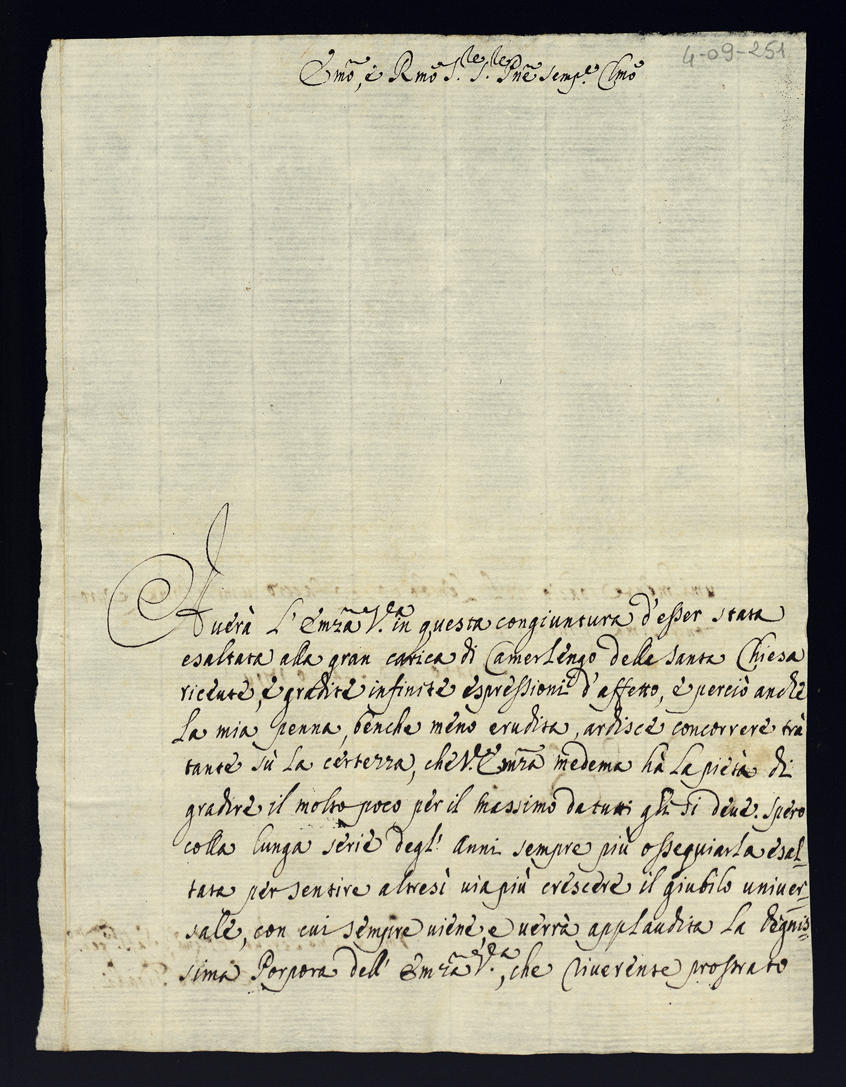 4-09-251
Emo, è Rmo S.re S.re Pne semp.e Clmo
Auerà L'Emza V.a in questa congiuntura d'esser stata
esaltata alla gran carica di Camerlengo della Santa Chiesa
riceuute, è gradite infinite espressioni d'affetto, è perciò anche
la mia penna, benche meno erudita, ardisce concorrere trà
tante sù la certezza, che V.a Emza medema hà la pietà di
gradire il molto poco per il massimo da tutti gli si deue. Spero
colla lunga serie degl' Anni sempre più osseguiarla esal-
tata per sentire altresì uiapiù crescere il giubilo uniuer-
sale, con cui sempre uiene, e uerrà applaudita la Degnis-
sima Porpora dell' Emza V.a, che riuerente prostrato